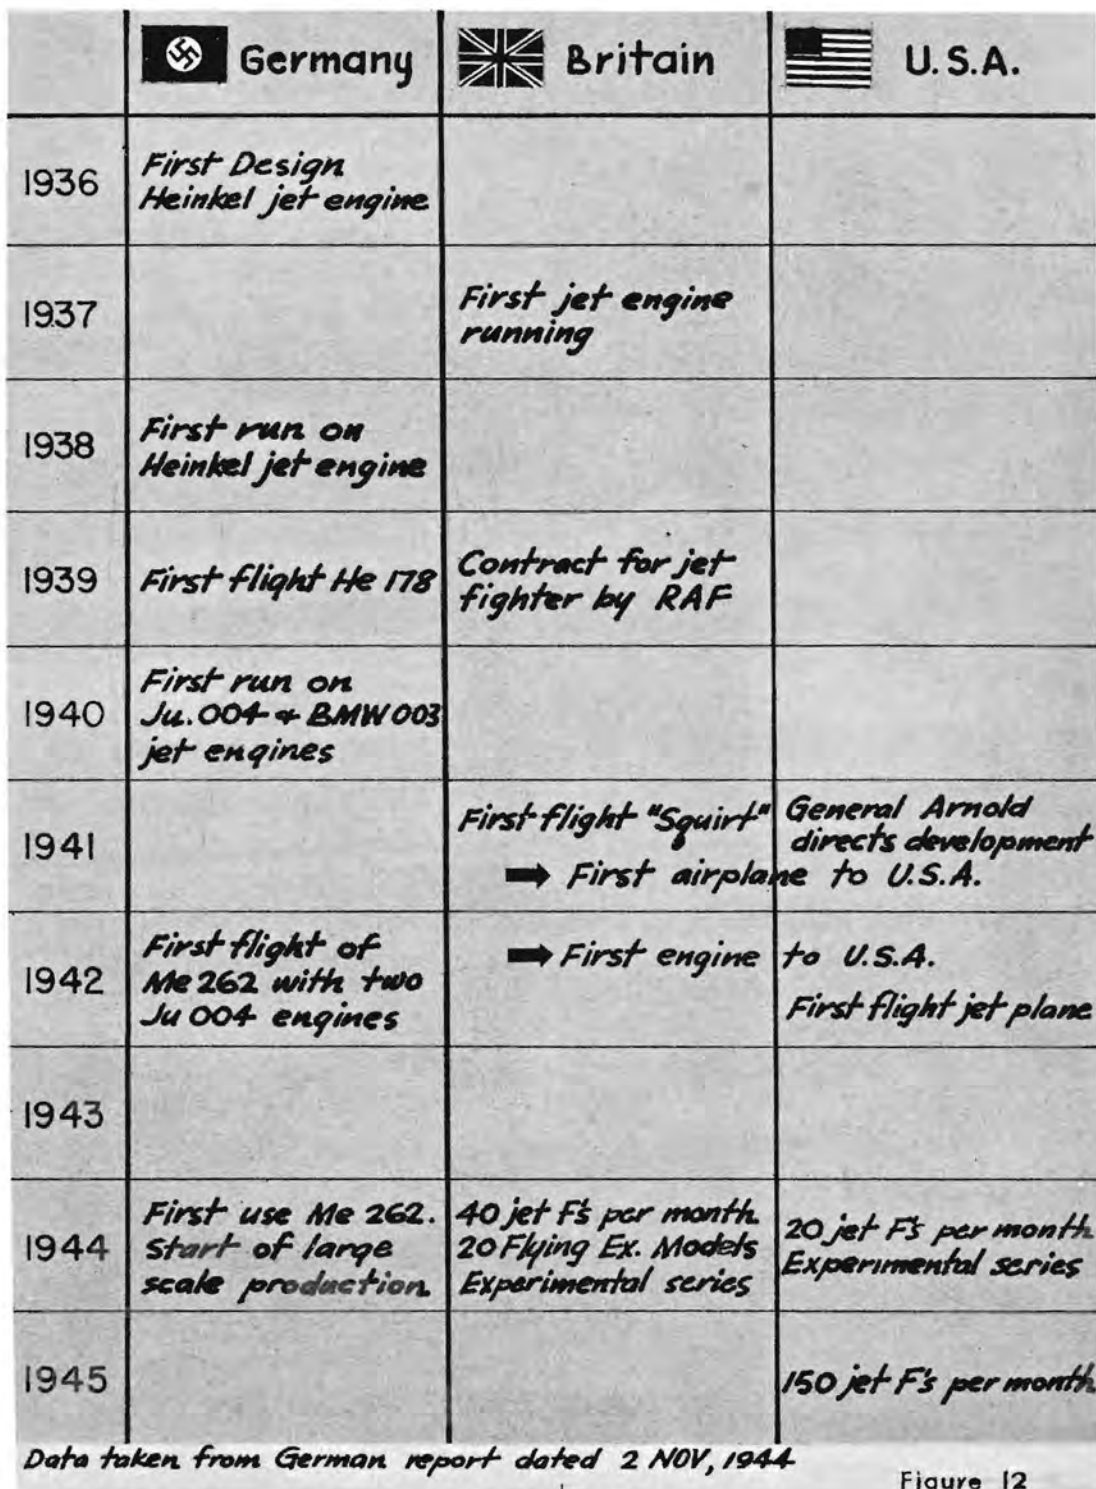 Germany Britain U.S.A.
1936
First Design
Heinkel jet engine
1937
First jet engine
running
1938
First run on
Heinkel jet engine
1939
First flight He 178
Contract for jet
fighter by RAF
1940
First run on
Ju. 004 & BMW 003
jet engines
1941
First flight "Squirt"
General Arnold
directs development
➡ First airplane to U.S.A.
1942
First flight of
Me 262 with two
Ju 004 engines
➡ First engine to U.S.A.
First flight jet plane
1943
1944
First use Me 262.
Start of large
scale production.
40 jet F's per month.
20 Flying Ex. Models
Experimental series
20 jet F's per month.
Experimental series
1945
150 jet F's per month
Data taken from German report dated 2 NOV, 1944
Figure 12